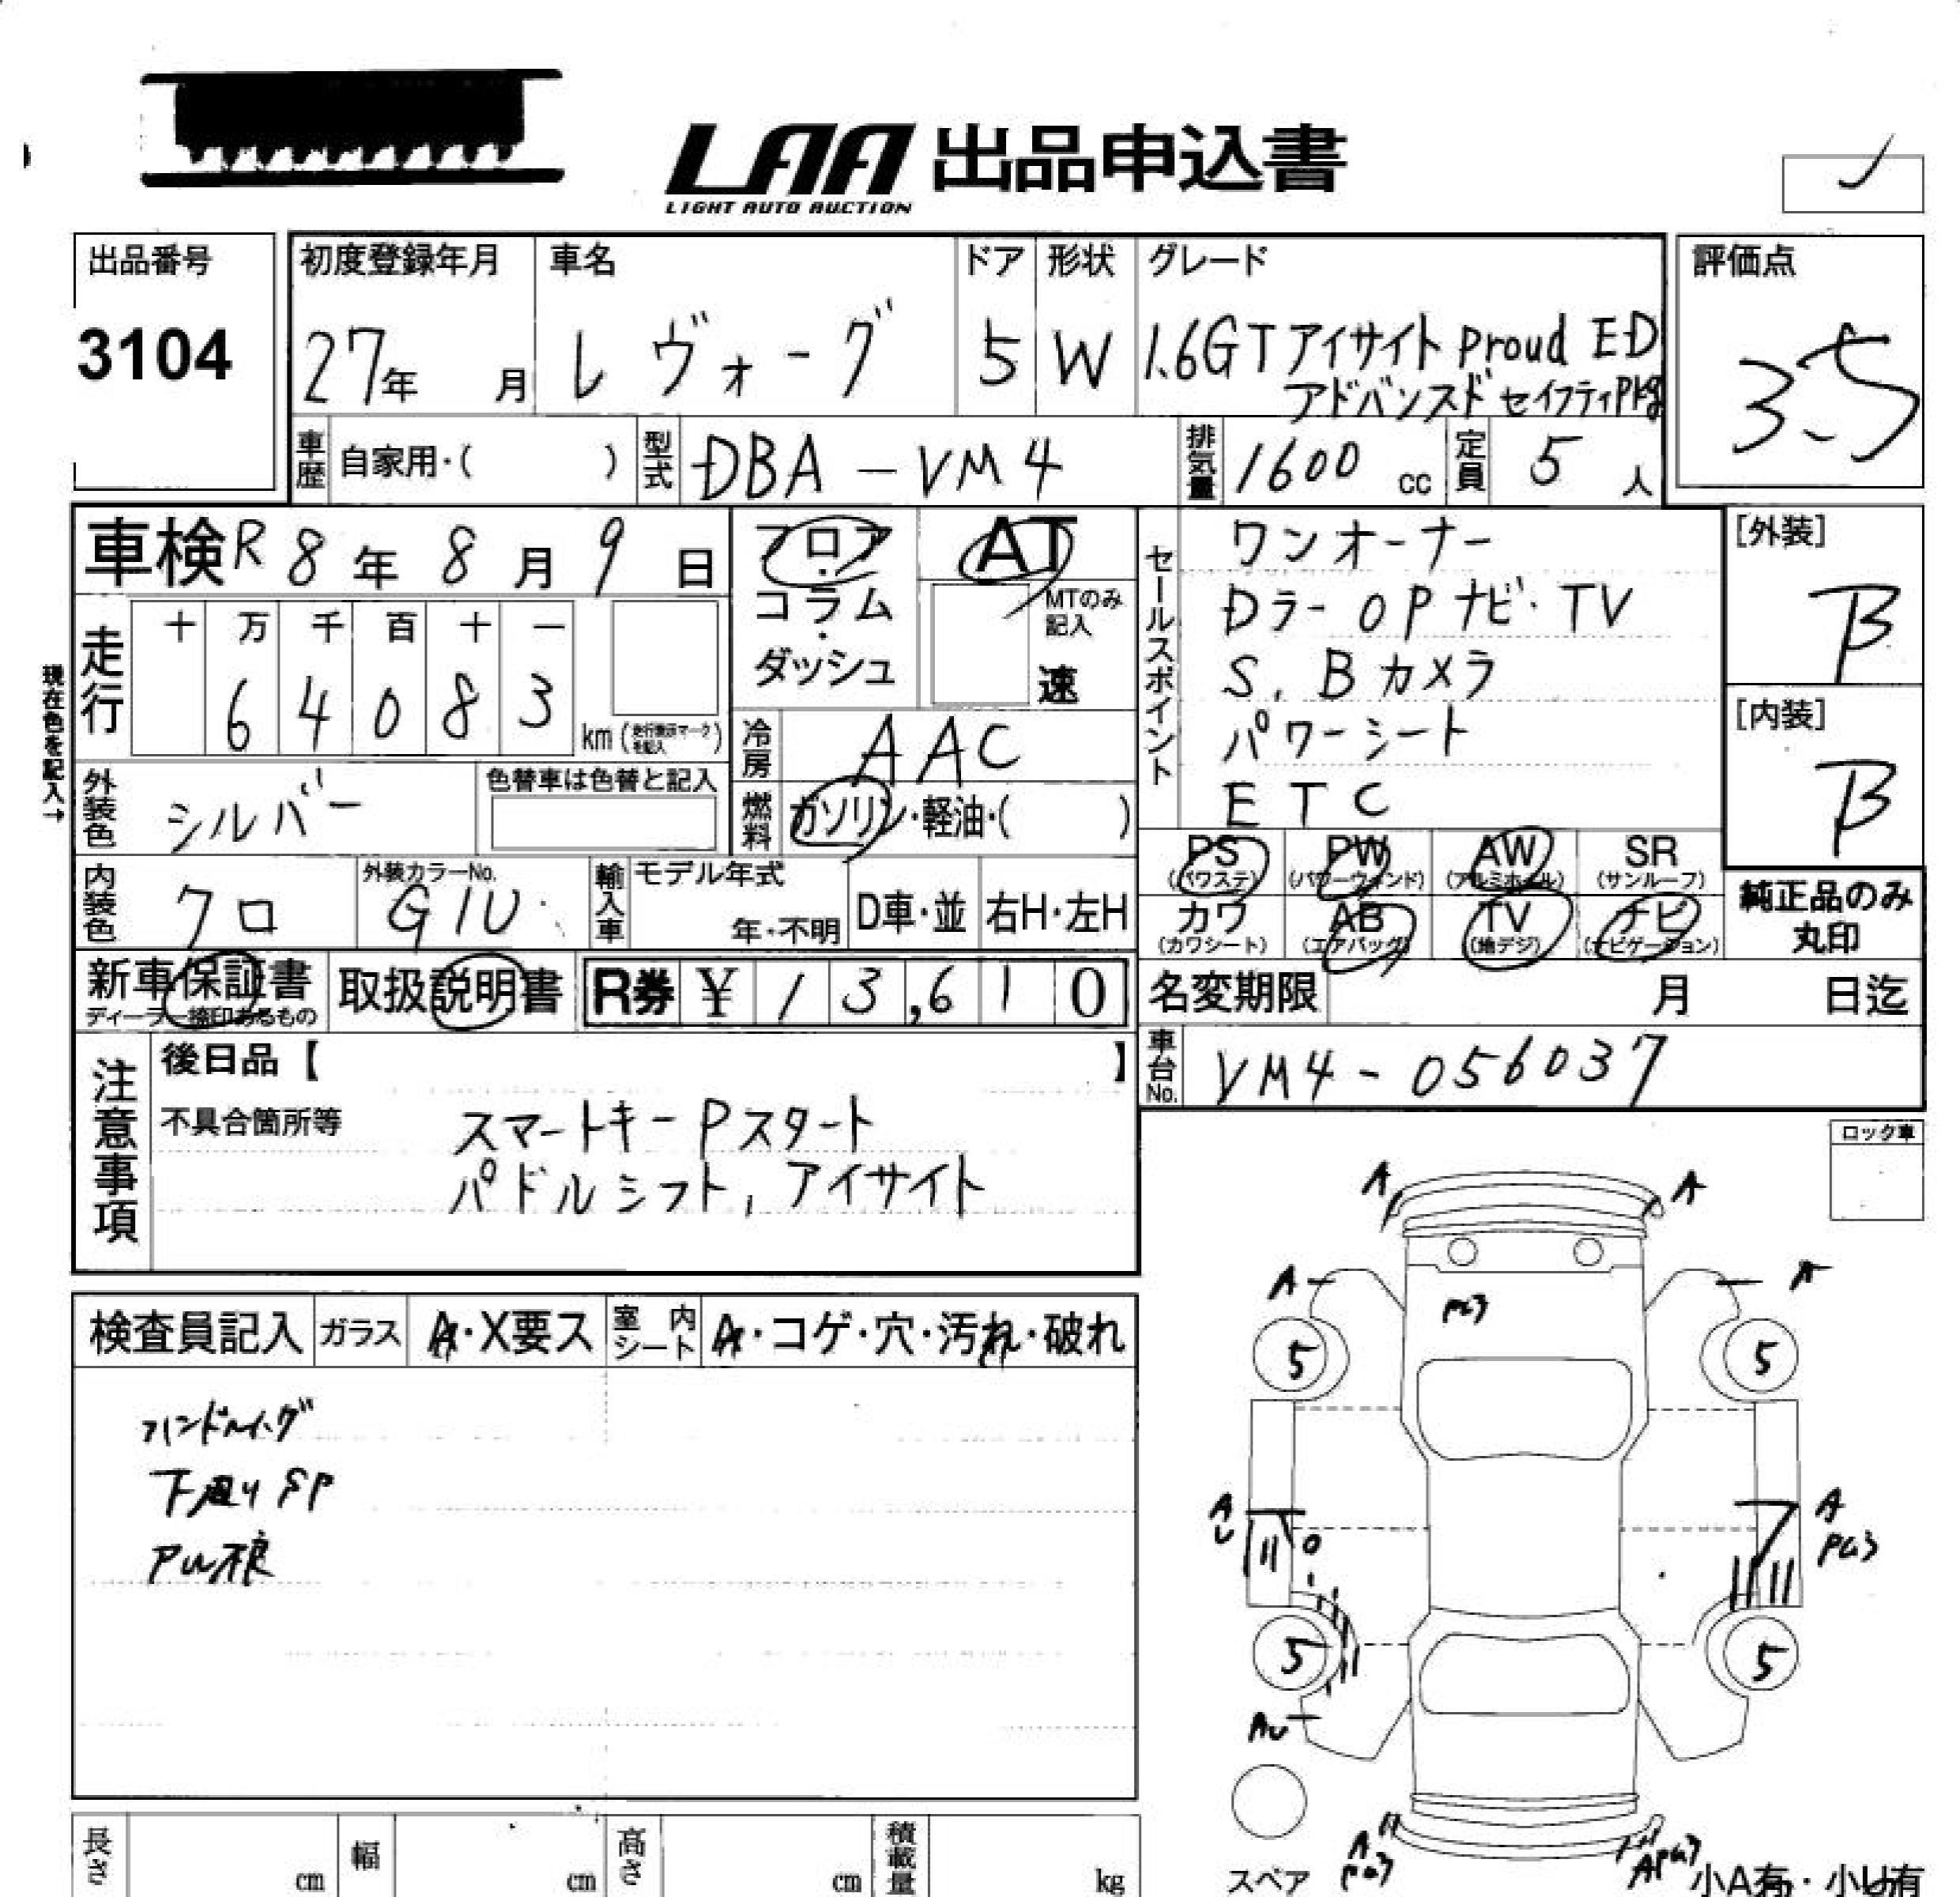 LAA 出品申込書
LIGHT AUTO AUCTION
出品番号
3104
初度登録年月
27年 月
車名
レヴォーグ
ドア
5
形状
W
グレード
1.6GTアイサイト proud ED
アドバンスドセイフティPkg
評価点
3.5
車歴 自家用・( )
型式 DBA-VM4
排気量 1600 cc
定員 5 人
車検 R8年8月9日
フロア・コラム・ダッシュ
AT
MTのみ記入
速
セールスポイント
ワンオーナー
Dラー OPナビ・TV
S,Bカメラ
パワーシート
ETC
[外装]
B
[内装]
B
現在色を記入→
走行
十 万 千 百 十 一
6 4 0 8 3
km
冷房 AAC
燃料 ガソリン・軽油・( )
外装色 シルバー
色替車は色替と記入
内装色 クロ
外装カラーNo.
G1U
輸入車
モデル年式
年・不明
D車・並
右H・左H
PS (パワステ)
PW (パワーウィンド)
AW (アルミホイール)
SR (サンルーフ)
カワ (カワシート)
AB (エアバッグ)
TV (地デジ)
ナビ (ナビゲーション)
純正品のみ
丸印
新車保証書
ディーラー捺印あるもの
取扱説明書
R券 ¥13,610
名変期限 月 日迄
車台No. VM4-056037
注意事項
後日品【 】
不具合箇所等
スマートキー Pスタート
パドルシフト, アイサイト
ロック車
検査員記入
ガラス A・X要ス
室内シート A・コゲ・穴・汚れ・破れ
下廻りSP
A A
A A
PG3
5 5
A
U
A
PG3
5 5
AU
A
PG3
APG3
スペア
小A有・小U有
長さ cm
幅 cm
高さ cm
積載量 kg